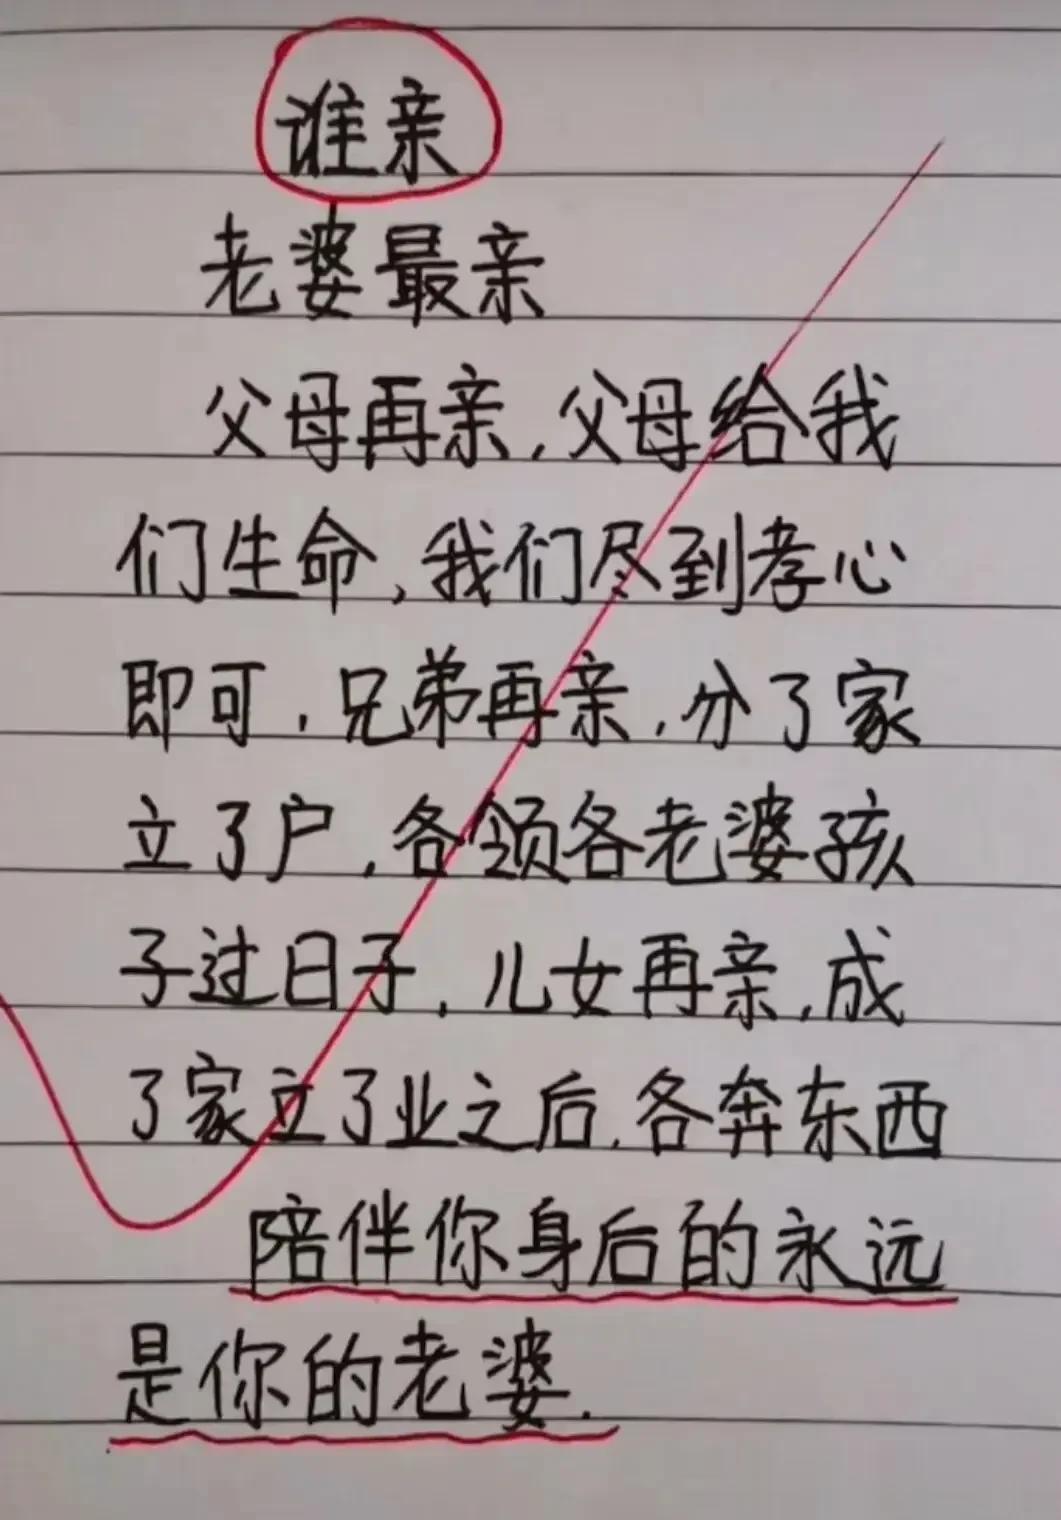 谁亲
老婆最亲
父母再亲，父母给我
们生命，我们尽到孝心
即可，兄弟再亲，分了家
立了户，各领各老婆孩
子过日子，儿女再亲，成
了家立了业之后，各奔东西
陪伴你身后的永远
是你的老婆.